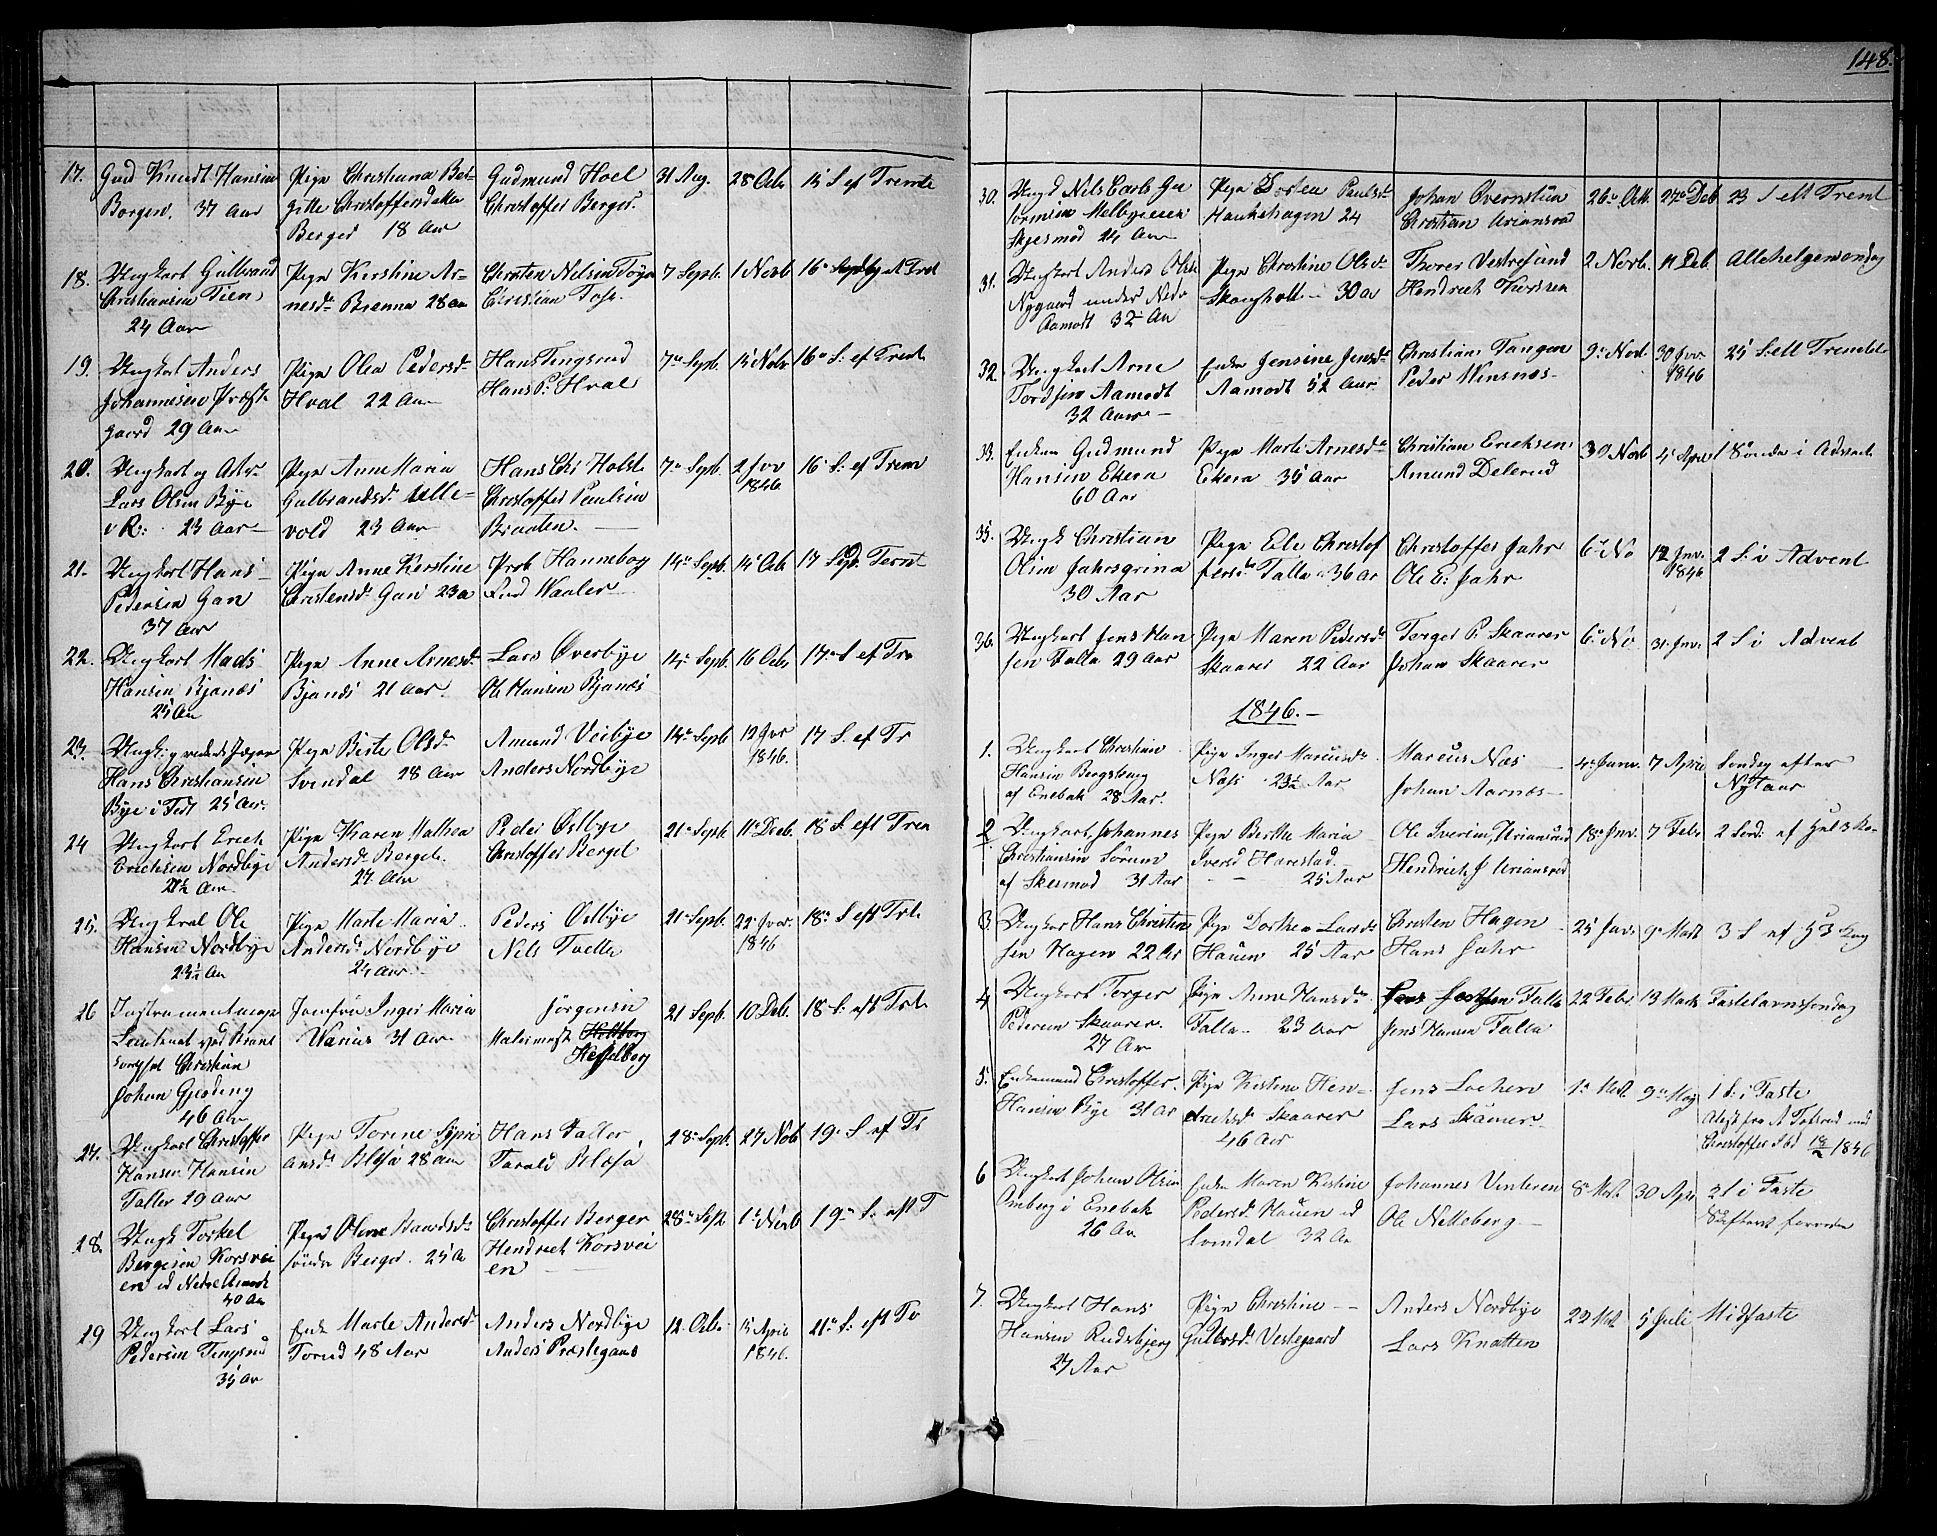 148.
17. Gad Knudt Hansen
Borgen. 37 Aar
Pige Christiana Bir-
gitte Christoffersdatter
Berger 18 Aar
Gudmund Hoel
Christoffer Berger.
31 Aug.
28 Octr
15 S. ef Trinit
18. Ungkarl Gulbrand
Christiansen Tien
24 Aar
Pige Kirstine Ar-
nesdr Brenna 28 aar
Christen Nilsen
Christian Toss.
7 Septb.
1 Novb
16
19. Ungkarl Anders
Johannesen Præste
gaard 29 Aar
Pige Olea Pedersdr
Hval 22 Aar
Hans Tingsrud
Hans P. Hval
7de Septb.
15 Nobr
16de S: ef Trinit
20. Ungkarl og
Lars Olsen Bye
23 Aar
Pige Anne Maria
Gulbrandsdr Ulle-
vold 23 Aar
Hans Chr Holst
Christoffer Paulsen
Braaten.
7de Sept.
2 Jvr
1846
16 S. ef Trin
21. Ungkarl Hans
Pedersen Gan
37 Aar
Pige Anne Kirstine
Christensdr Gan 23 a
Prob Hanneborg
Lind Waaler
14de Septb.
15 Octr
17 Trint
22. Ungkarl Mads
Hansen Bjanæs
25 Aar
Pige Anne Arnesdr
Bjanæs 21 Aar
Lars Øverbye
Ole Hansen Bjanæs
14de Septb.
16 Octr
17de S ef Tr
23.
Hans Christiansen
Bye i Fet 25 Aar
Pige Birte Olsdr
Svendal 28 Aar
Amund Veibye
Anders Nordbye
14de Septb
12 Jvr
1846.
17 S. ef Tr
24 Ungkarl Erich
Erichsen Nordbye
21½ Aar
Pige Karen Mathea
Andersdr Berget
27 Aar
Peder Østbye
Christoffer Berget
21de Septb
11 Deb.
18 S. eft Trin
25. Ungkarl Ole
Hansen Nordbye
23½ Aar
Pige Marte Maria
Andersdr Nordbye
24 Aar
Peder Østbye
Nils Tvetter
21de Septb.
22 Jvr.
1846
18de S eft Tr
26
Lieutenant ved
Christian
Johan Gjeding
46 Aar
Jomfru Inger Maria
31 Aar
Jørgensen
Malermester
Hesselberg
21 Septb.
10 Deb.
18 S. eft Tr
27. Ungkarl Christoffer
Hansen Hansen
Faller 29 Aar
Pige Torine Sypri
ansdr Blæsa 28 aar
Hans Faller
Tarald Blæsa
28de Septb.
27 Nob
19 S ef Tr
28. Ungk Torkel
Bergesen Korsvei
en ed Nedre Aamot
40 Aar
Pige Olene
søndre Berger. 25 Aar
Christoffer Berger
Hendrich Korsvei
en
28de Sept.
1 Novb
19de S. eft T
29 Ungkarl Lars
Pedersen Tingsrud
35 Ar
Enke Marte Andersdr
Torud 48 Aar
Anders Nordbye
Anders Præstegaard
12 Octr
15 April
1846.
21de S. eft Tr
30. Ungk Nils Carls
Melbyeeien
Skjesmod 24 Aar
Pige Dorthea Paulsdr
Haukshagen 24
Johan Overnstuen
Christian Uriansrud
26de Oct.
27de Deb
23 S eft Trinit
31. Ungkarl Anders Olsen
Nygaard under Nedr
Aamodt 32 Aar
Pige Christine Olsdr
Skougholt 30 a
Thorer Vestresund
Hendrich
2 Novb.
11 Deb.
Allehelgensondag
32. Ungkarl Arne
Tordsen Aamodt
32 Aar
Enke Jensine Jensdr
Aamodt 52 Aar
Christian Tangen
Peder Winsnæs
9de Novb.
30 Jvr
1846
25 S. eft Trinit
33. Enkem Gudmund
Hansen Ekera
60 Aar
Pige Marte Arnesdr
Ekera 35 Aar
Christian Erichsen
Amund Delerud
30 Novb
4 April
1 Sønda i Advent
35. Ungk Christian
Olsen Jahrsgrina
30 Aar
Pige Ele Christof
fersdr Falla 36 ar
Christoffer Jahr
Ole E. Jahr
6te No
12 Jnv.
1846
2 S. i Advent
36. Ungkarl Jens Han
sen Falla 29 Aar
Pige Maren Pedersdr
Skaarer 22 Aar
Torger P. Skaarer
Johan Skaarer
6te No
31 Jnv.
2 S i Advent
1846.
1. Ungkarl Christian
Hansen Bergskaug
af Enebak 28 Aar.
Pige Inger Marcusdr
Næss 23½ Aar
Marcus Næs
Johan Aarnæs
4de Janv.
7 April
Søndag efter
Nytaar
2 Ungkarl Johannes
Christiansen Sørum
af Skesmod 31 Aar
Pige Berthe Maria
Iversd Harestad
25 Aar
Ole Iversen, Uriansrud
Hendrich J Uriansrud
18de Jnv.
7 Febr
2 Sønd. ef
3. Ungkar Hans Christen
sen Hagen 22 Ar
Pige Dorthea Larsdr
Hauen 25 Aar
Christen Hagen
Hans Jahr
25 Janv.
9de Mart
3 S ef H 3 Kong
4 Ungkarl Torger
Pedersen Skaarer.
27 Ar
Pige Anne Hansdr
Falla 23 Aar
Falla
Jens Hansen Falla
22 Febr
13 Marts
Fastelavnssøndag
5. Enkemand Christoffer
Hansen Bye 31 Ar
Pige Kirstine Hen-
drichsdr Skaarer
46 Aar
Jens Lochen
Lars Skaarer
1de Mart.
9de Maj
1 S. i Faste
1846
6 Ungkarl Johan Olsen
Amberg i Enebak
26 Ar
Enke Maren Kirstine
Pedersdr Hauen ed
Svendal 32 Ar
Johannes Vinteren
Ole Nelleberg
8de Mart.
30 Apr
2 S i Faste
Skiftet forevist
7. Ungkarl Hans
Hansen Rudsbjerg
27 Aar
Pige Christine
Vestegaard
Anders Nordbye
Lars Knatten
22 Mart
5 Juli
Midfaste